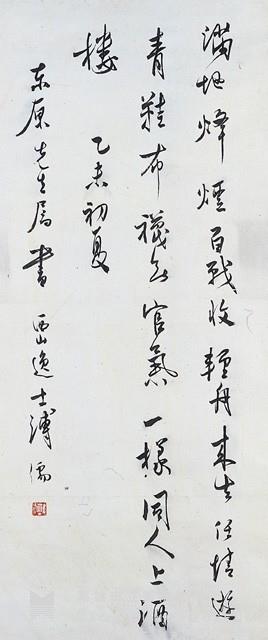 滿地烽煙百戰收輕舟來去任情遊
青鞵布襪無官氣一樣同人上酒
樓 乙未初夏
東原先生屬書 西山逸士溥儒